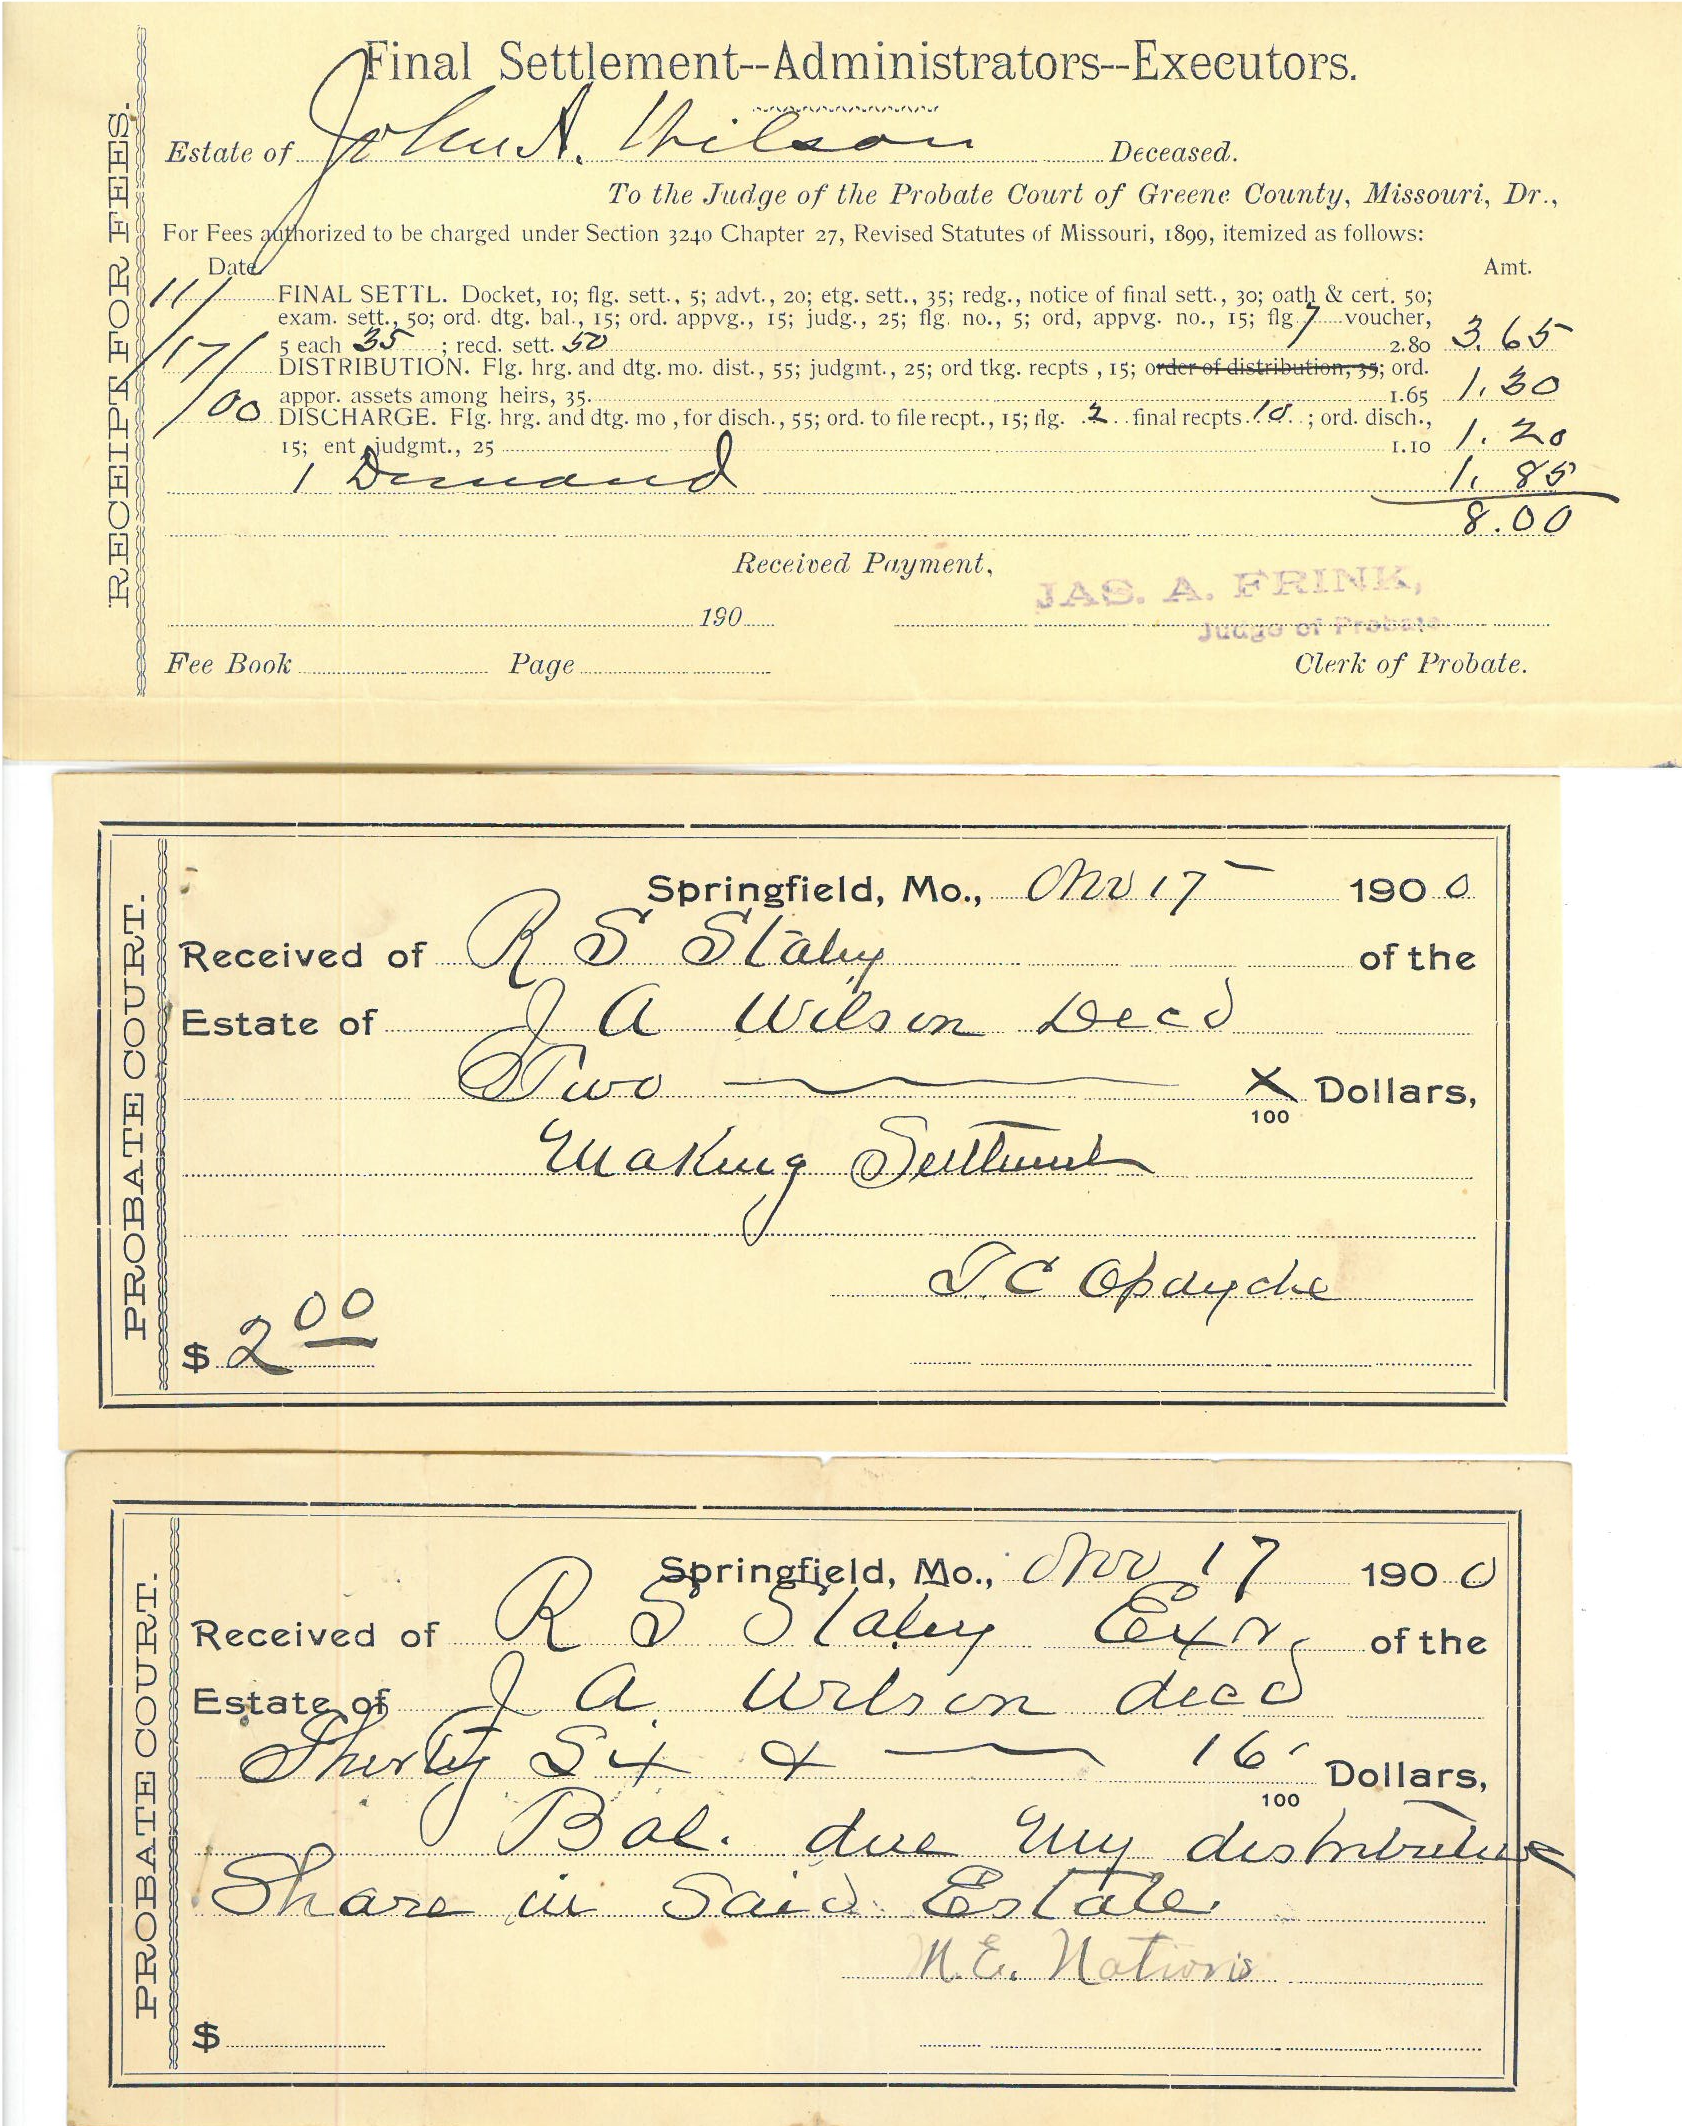 RECEIPT FOR FEES.
Final Settlement--Administrators--Executors.
Estate of John A. Wilson Deceased.
To the Judge of the Probate Court of Greene County, Missouri, Dr.,
For Fees authorized to be charged under Section 3240 Chapter 27, Revised Statutes of Missouri, 1899, itemized as follows:
Date Amt.
11/ FINAL SETTL. Docket, 10; flg. sett., 5; advt., 20; etg. sett., 35; redg., notice of final sett., 30; oath & cert. 50;
exam. sett., 50; ord. dtg. bal., 15; ord. appvg., 15; judg., 25; flg. no., 5; ord, appvg. no., 15; flg 7 voucher,
5 each 35 ; recd. sett. 50 2.80 3.65
/17/ DISTRIBUTION. Flg. hrg. and dtg. mo. dist., 55; judgmt., 25; ord tkg. recpts , 15; order of distribution, 35; ord.
appor. assets among heirs, 35. 1.65 1.30
/00 DISCHARGE. Flg. hrg. and dtg. mo , for disch., 55; ord. to file recpt., 15; flg. 2 final recpts 10 ; ord. disch.,
15; ent judgmt., 25 1.10 1.20
1 Demand 1.85
8.00
Received Payment,
JAS. A. FRINK,
Judge of Probate
190
Fee Book Page Clerk of Probate.
PROBATE COURT.
Springfield, Mo., Nov 17 1900
Received of R S Staley of the
Estate of J A Wilson Decd
Two x/100 Dollars,
Making Settlement
T. C Opdycke
$ 2 00
PROBATE COURT.
Springfield, Mo., Nov 17 1900
Received of R S Staley Exr, of the
Estate of J A. Wilson decd
Thirty Six & 16/100 Dollars,
Bal. due My distributive
Share in Said Estate.
M.E. Nations
$